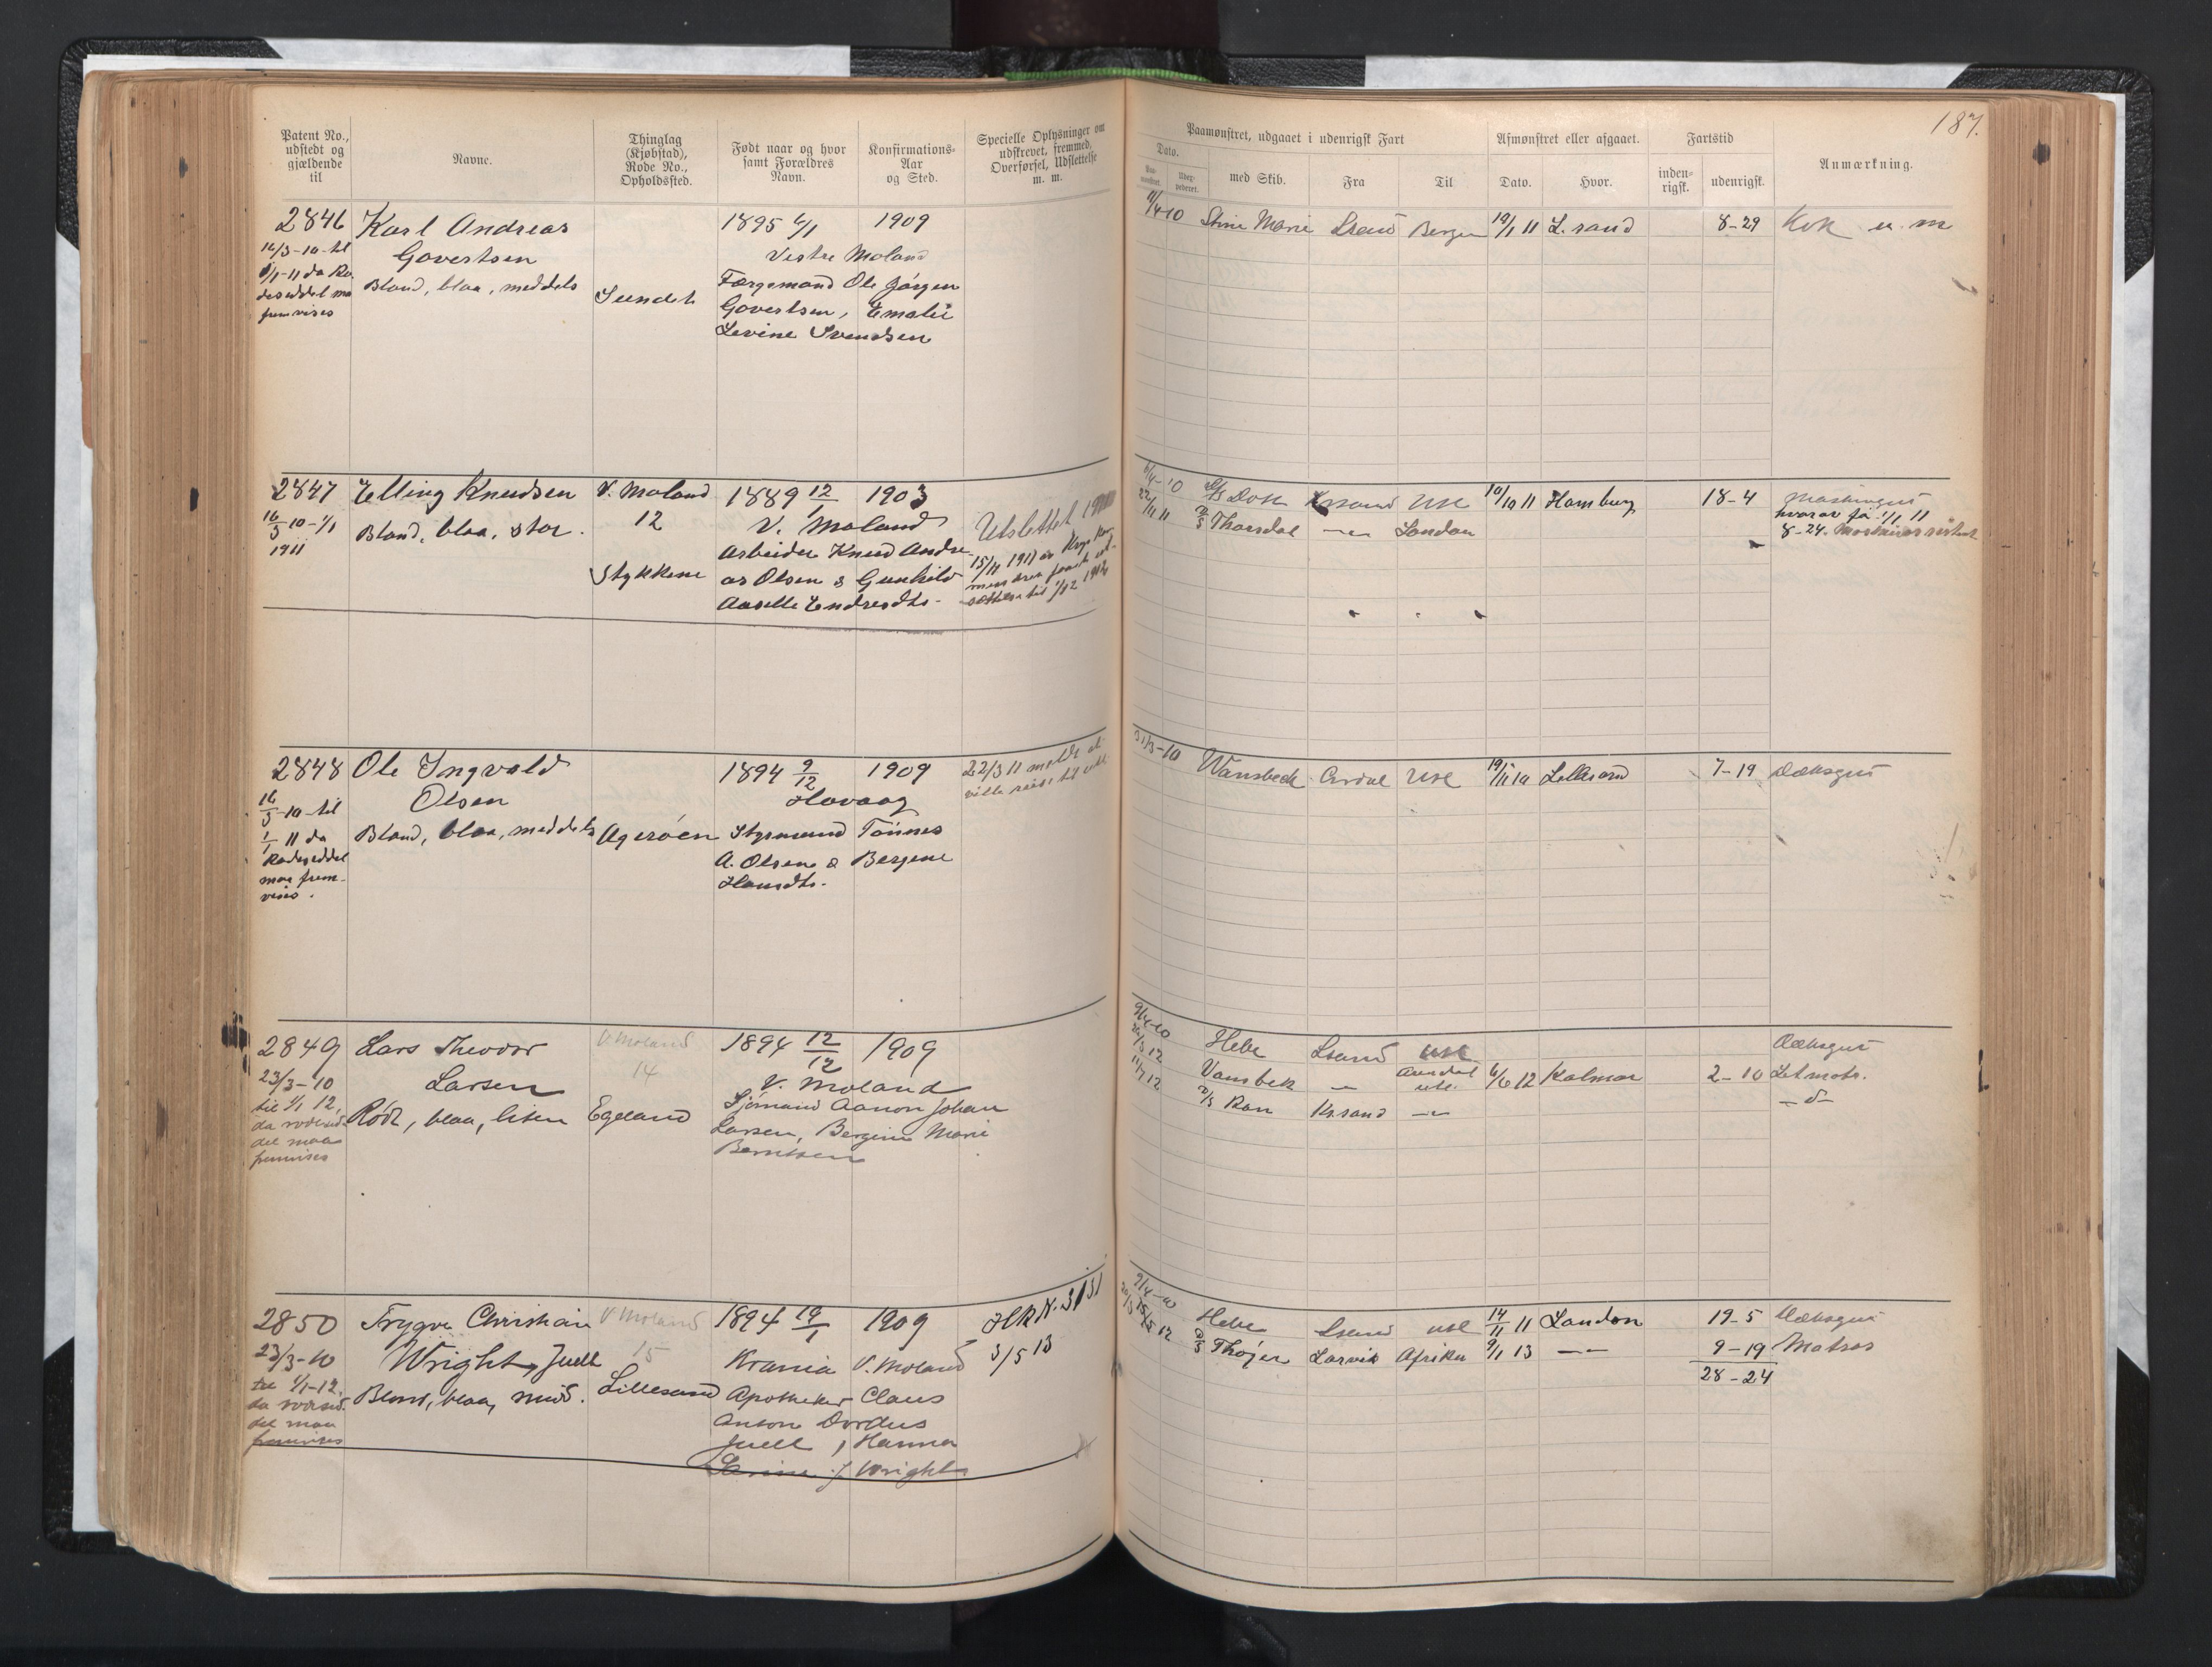 187.
Patent No., udstedt og gjældende til
Navne.
Thinglag (Kjøbstad), Rode No., Opholdssted.
Født naar og hvor samt Forældres Navn.
Konfirmations-Aar og Sted.
Specielle Oplysninger om udskrevet, fremmed, Overførsel, Udslettelse m. m.
Paamønstret, udgaaet i udenrigsk Fart
Dato.
med Skib.
Fra
Til
Afmønstret eller afgaaet.
Dato.
Hvor.
Fartstid
inden-rigsk.
udenrigsk.
Anmærkning.
2846 Karl Andreas 1895 6/1 1909
16/3-10 til Govertsen Vestre Moland
1/1-11 da Ro- Blond, blaa, meddels Sundet Færgemand Ole Jørgen
deseddel maa Govertsen, Emalie
fremvises Levine Svendsen
4-10 Stine Marie Lsand Bergen 19/1 11 L.sand 8-29 Kok u. m
2847 Elling Knudsen V. Moland 1889 12/1 1903
16/3-10-1/1 Blond, blaa, stor. 12 V. Moland Utslettet
1911 Arbeider Knud Andre-
Stykkene as Olsen & Gunhild
Aaselle Endresdtr.
15/11 1911
6/4-10 D/S Dosk Krsand Usl 10/10 11 Hamburg 18-4
22/11 11 D/S Thorsdal -"- London hvorav fø 1/1 11
8-24.
2848 Ole Ingvald 1894 9/12 1909 22/3 11 meldt at
16/3-10 til Olsen Høvaag ville reise til
1/1 11 da Blond, blaa, meddels Agerøen Styrmand Tønnes
Rodeseddel A. Olsen & Bergine
maa frem- Hansdtr.
vises.
31/3-10 Wansbeck Arendal Usl 19/11 10 Lillesand 7-19 Dæksgut
2849 Lars Theodor V. Moland 1894 12/12 1909
23/3-10 Larsen 14 V. Moland
til 1/1 12, Rødt, blaa, liten Egeland Sjømand Aanon Johan
da rodesed- Larsen, Bergine Marie
del maa Berntsen
fremvises
9/4-10 Hebe Lsand Usl Dæksgut
12 Vansbek - Arendal utl. 6/6 12 Kalmar 2-10 Letmatr.
11/7 12 D/S Ran Krsand -"- -d-
2850 Trygve Christian V Moland 1894 19/1 1909 HRN. 3131
23/3-10 Wright Juell 15 Krania V. Moland 3/5 13
til 1/1-12, Blond, blaa, midd. Lillesand Apotheker Claus
da rodesed- Anton Dordus
del maa Juell, Hanna
fremvises Larine f Wright
9/4-10 Hebe Lsand usl 14/11 11 London 19-5 Dæksgut
12 D/S Thøger Larvik Afrika 9/1 13 -"- 9-19 Matros
28-24